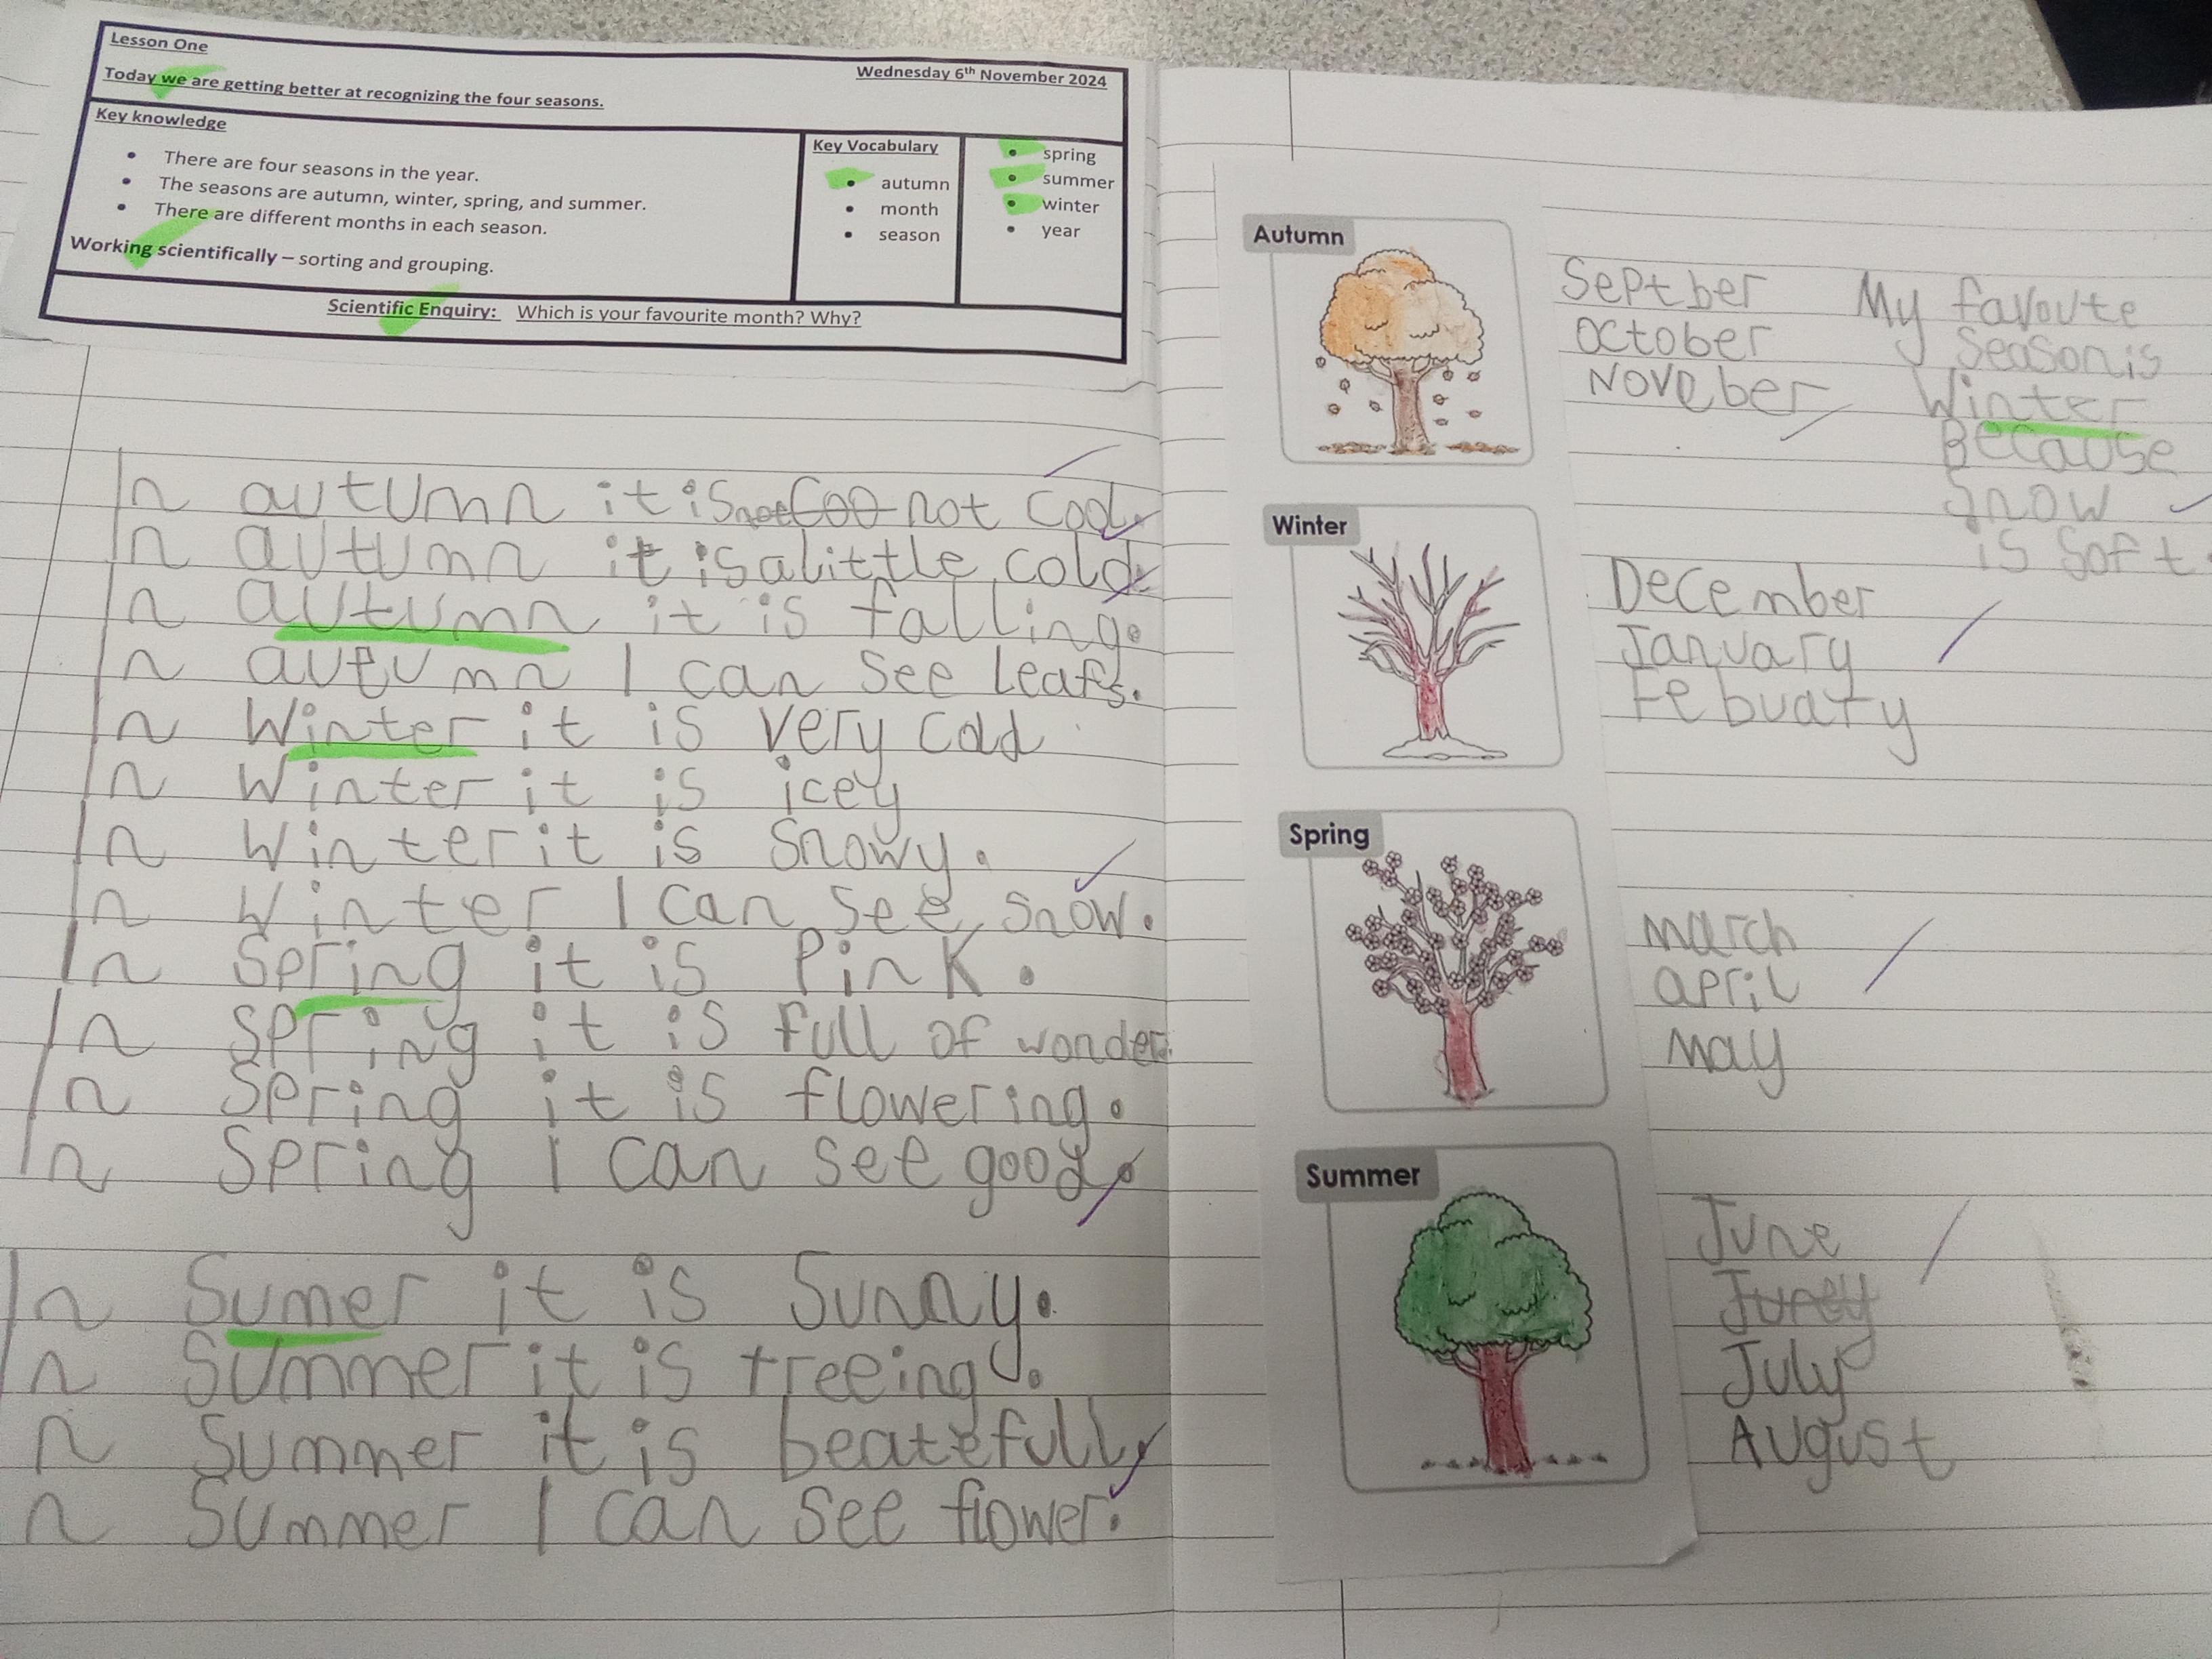 Lesson One
Wednesday 6th November 2024
Today we are getting better at recognizing the four seasons.
Key knowledge
• There are four seasons in the year.
• The seasons are autumn, winter, spring, and summer.
• There are different months in each season.
Working scientifically – sorting and grouping.
Key Vocabulary
• autumn
• month
• season
• spring
• summer
• winter
• year
Scientific Enquiry: Which is your favourite month? Why?
In autumn it is not cool.
In autumn it is a little cold.
In autumn it is falling.
In autumn I can see leafs.
In Winter it is very cold
In Winter it is icey
In Winter it is snowy.
In Winter I can see snow.
In Spring it is Pink.
In Spring it is full of wonder.
In Spring it is flowering.
In Spring I can see good.
In Sumer it is Sunny.
In Summer it is treeing.
In Summer it is beatefull.
In Summer I can see flower.
Autumn
Septber
October
Noveber
My favoute
season is
Winter
Because
snow
is soft.
Winter
December
January
Febuary
Spring
march
april
may
Summer
June
July
August